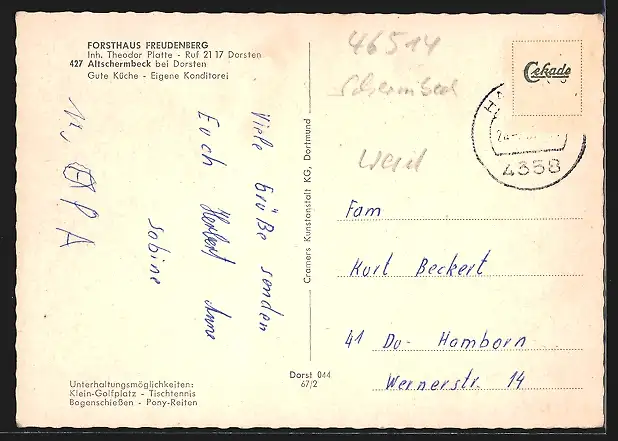 FORSTHAUS FREUDENBERG
Inh. Theodor Platte - Ruf 21 17 Dorsten
427 Altschermbeck bei Dorsten
Gute Küche - Eigene Konditorei
Viele Grüße senden
Euch Herbert Anne
Sabine
u. OPA
Unterhaltungsmöglichkeiten:
Klein-Golfplatz - Tischtennis
Bogenschießen - Pony-Reiten
Cramers Kunstanstalt KG, Dortmund
Dorst 044
67/2
46514
Schermbeck
Wesel
Cekade
4358
Fam
Kurt Beckert
41 Du- Hamborn
Wernerstr. 14